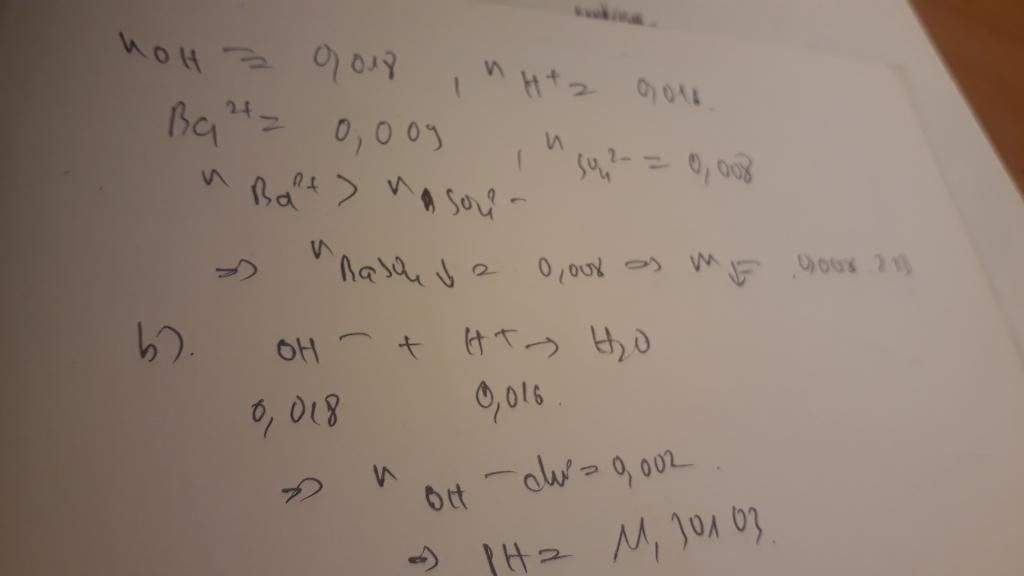 nOH = 0,018 , nH+ = 0,016.
Ba2+ = 0,009 , nSO42- = 0,008
nBa2+ > nSO42-
=> nBaSO4↓ = 0,008 => m↓= 0,008.233
b). OH- + H+ -> H2O
0,018 0,016.
=> nOH- dư = 0,002.
=> PH = 11,30103.